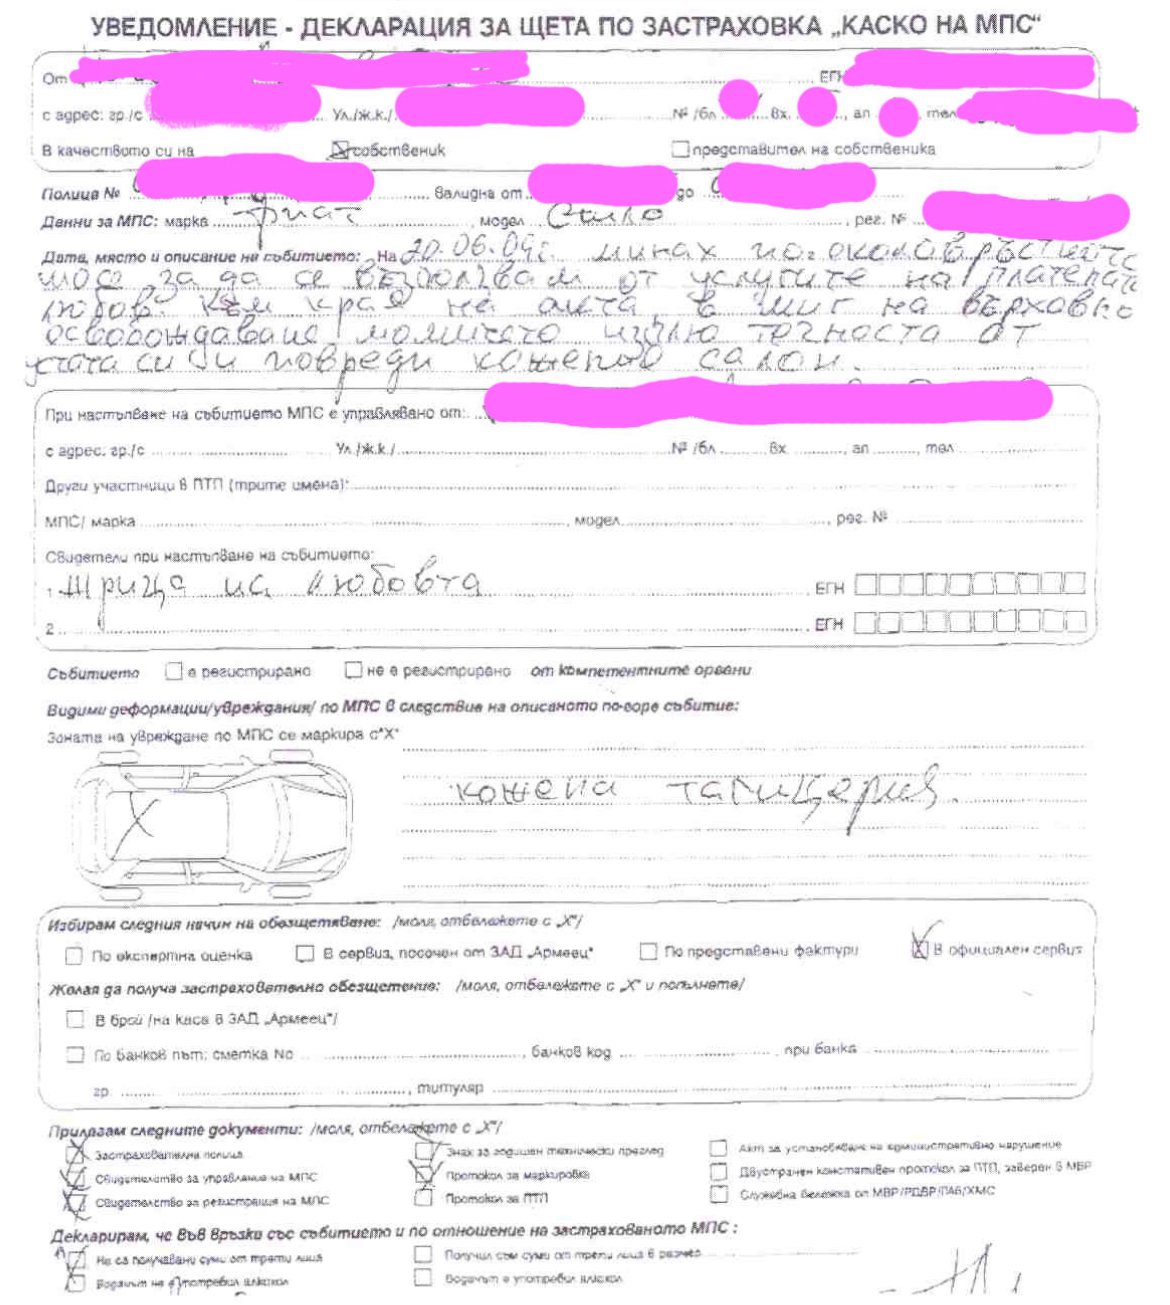 УВЕДОМЛЕНИЕ - ДЕКЛАРАЦИЯ ЗА ЩЕТА ПО ЗАСТРАХОВКА „КАСКО НА МПС“
От ЕГН
с адрес: гр./с Ул./ж.к./ № /бл вх. , ап , тел
В качеството си на собственик представител на собственика
Полица № валидна от до
Данни за МПС: марка Фиат , модел Стило , рег. №
Дата, място и описание на събитието: На 20.06.09г. минах по околовръстното
шосе за да се възползвам от услугите на платената
любов. Към края на акта, в миг на върховно
освобождаване, момичето изпло течноста от
устата си и повреди кожения салон.
При настъпване на събитието МПС е управлявано от:
с адрес: гр./с Ул./ж.к./ № /бл вх , ап , тел
Други участници в ПТП (трите имена):
МПС/ марка , модел , рег. №
Свидетели при настъпване на събитието:
1. Жрица на любовта ЕГН
2 ЕГН
Събитието е регистрирано не е регистрирано от компетентните органи
Видими деформации/увреждания/ по МПС в следствие на описаното по-горе събитие:
Зоната на увреждане по МПС се маркира с"Х"
кожена тапицерия.
Избирам следния начин на обезщетяване: /моля, отбележете с „Х"/
По експертна оценка В сервиз, посочен от ЗАД „Армеец“ По представени фактури В официален сервиз
Желая да получа застрахователно обезщетение: /моля, отбележете с „Х" и попълнете/
В брой /на каса в ЗАД „Армеец"/
По банков път: сметка No , банков код , при банка
гр , титуляр
Прилагам следните документи: /моля, отбележете с „Х"/
Застрахователна полица Знак за годишен технически преглед Акт за установяване на административно нарушение
Свидетелство за управление на МПС Протокол за маркировка Двустранен констативен протокол за ПТП, заверен в МВР
Свидетелство за регистрация на МПС Протокол за ПТП Служебна бележка от МВР/РДВР/ПАБ/ХМС
Декларирам, че във връзка със събитието и по отношение на застрахованото МПС :
Не са получавани суми от трети лица Получил съм суми от трети лица в размер
Водачът не е употребил алкохол Водачът е употребил алкохол